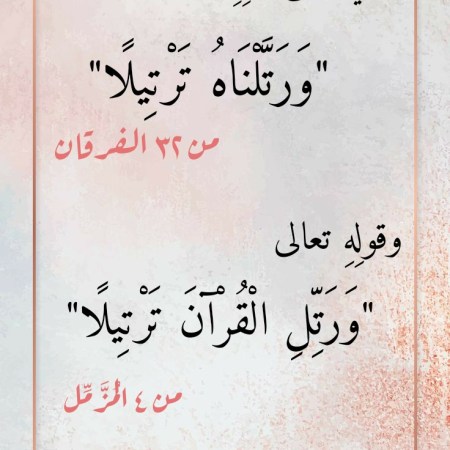 "وَرَتَّلْنَاهُ تَرْتِيلًا"
من ٣٢ الفرقان
وقولِهِ تعالى
"وَرَتِّلِ الْقُرْآنَ تَرْتِيلًا"
من ٤ المُزَّمِّل